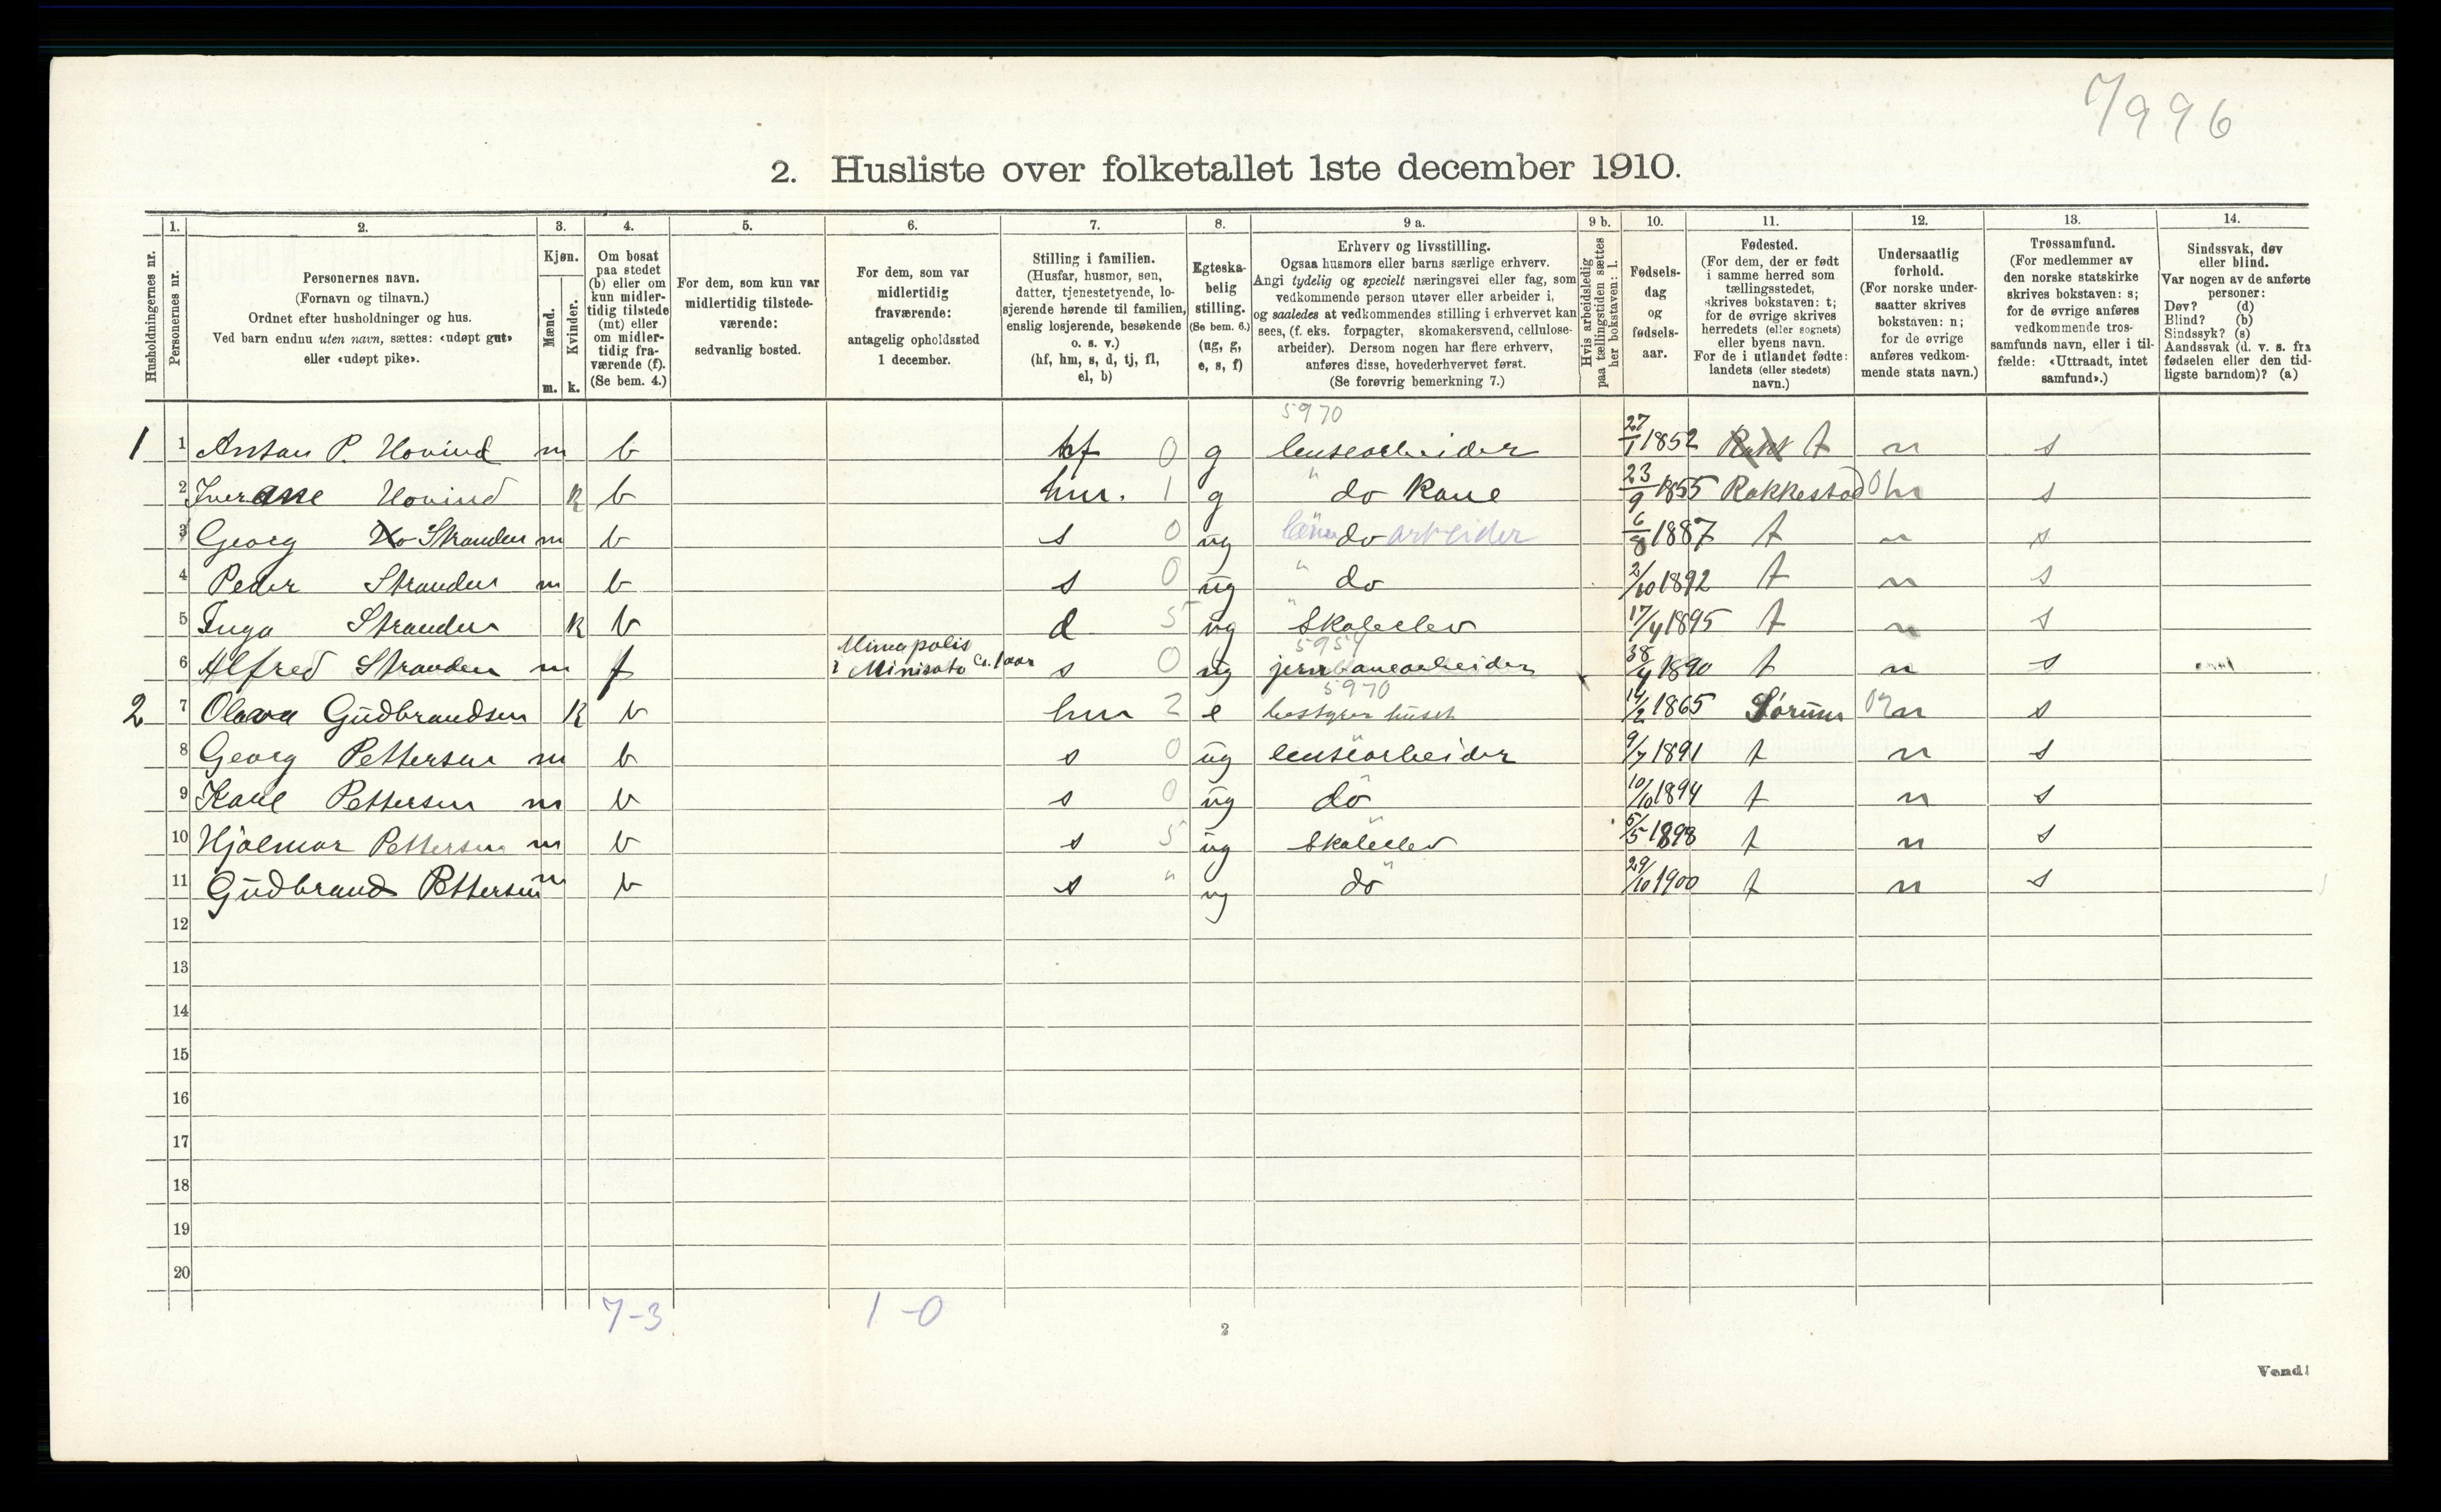 7/996
2. Husliste over folketallet 1ste december 1910.
1. 2. 3. 4. 5. 6. 7. 8. 9 a. 9 b. 10. 11. 12. 13. 14.
Husholdningernes nr.
Personernes nr.
Personernes navn.
(Fornavn og tilnavn.)
Ordnet efter husholdninger og hus.
Ved barn endnu uten navn, sættes: «udøpt gut»
eller «udøpt pike».
Kjøn.
Mænd.
Kvinder.
m. k.
Om bosat
paa stedet
(b) eller om
kun midler-
tidig tilstede
(mt) eller
om midler-
tidig fra-
værende (f).
(Se bem. 4.)
For dem, som kun var
midlertidig tilstede-
værende:
sedvanlig bosted.
For dem, som var
midlertidig
fraværende:
antagelig opholdssted
1 december.
Stilling i familien.
(Husfar, husmor, søn,
datter, tjenestetyende, lo-
sjerende hørende til familien,
enslig losjerende, besøkende
o. s. v.)
(hf, hm, s, d, tj, fl,
el, b)
Egteska-
belig
stilling.
(Se bem. 6.)
(ug, g,
e, s, f)
Erhverv og livsstilling.
Ogsaa husmors eller barns særlige erhverv.
Angi tydelig og specielt næringsvei eller fag, som
vedkommende person utøver eller arbeider i,
og saaledes at vedkommendes stilling i erhvervet kan
sees, (f. eks. forpagter, skomakersvend, cellulose-
arbeider). Dersom nogen har flere erhverv,
anføres disse, hovederhvervet først.
(Se forøvrig bemerkning 7.)
Hvis arbeidsledig
paa tællingstiden sættes
her bokstaven: l.
Fødsels-
dag
og
fødsels-
aar.
Fødested.
(For dem, der er født
i samme herred som
tællingsstedet,
skrives bokstaven: t;
for de øvrige skrives
herredets (eller sognets)
eller byens navn.
For de i utlandet fødte:
landets (eller stedets)
navn.)
Undersaatlig
forhold.
(For norske under-
saatter skrives
bokstaven: n;
for de øvrige
anføres vedkom-
mende stats navn.)
Trossamfund.
(For medlemmer av
den norske statskirke
skrives bokstaven: s;
for de øvrige anføres
vedkommende tros-
samfunds navn, eller i til-
fælde: «Uttraadt, intet
samfund».)
Sindssvak, døv
eller blind.
Var nogen av de anførte
personer:
Døv? (d)
Blind? (b)
Sindssyk? (s)
Aandssvak (d. v. s. fra
fødselen eller den tid-
ligste barndom)? (a)
5970
1 1 Antan P. Hovind m b hf 0 g lensearbeider 27/1 1852 t n s
2 Hovind k b hm. 1 g " do kone 23/9 1855 Rakkestad n s
3 Georg Stranden m b s 0 ug do arbeider 6/8 1887 t n s
4 Peder Stranden m b s 0 ug " do 2/10 1892 t n s
5 Inga Stranden k b d 5 ug " Skoleelev 17/4 1895 t n s
Minnapolis 5954
6 Alfred Stranden m f i Minisoto Ca. 1 aar s 0 ug jernbanearbeider 1890 t n s
5970
2 7 Olava Gudbrandsen k b hm 2 e bestyrer huset 14/2 1865 Sørum n s
8 Georg Pettersen m b s 0 ug lensearbeider 9/7 1891 t n s
9 Karl Pettersen m b s 0 ug do 10/10 1894 t n s
10 Hjalmar Pettersen m b s 5 ug Skoleelev 5/5 1898 t n s
11 Gudbrand Pettersen m b s " ug do 29/10 1900 t n s
12
13
14
15
16
17
18
19
20
7-3 1-0
2
Vend!